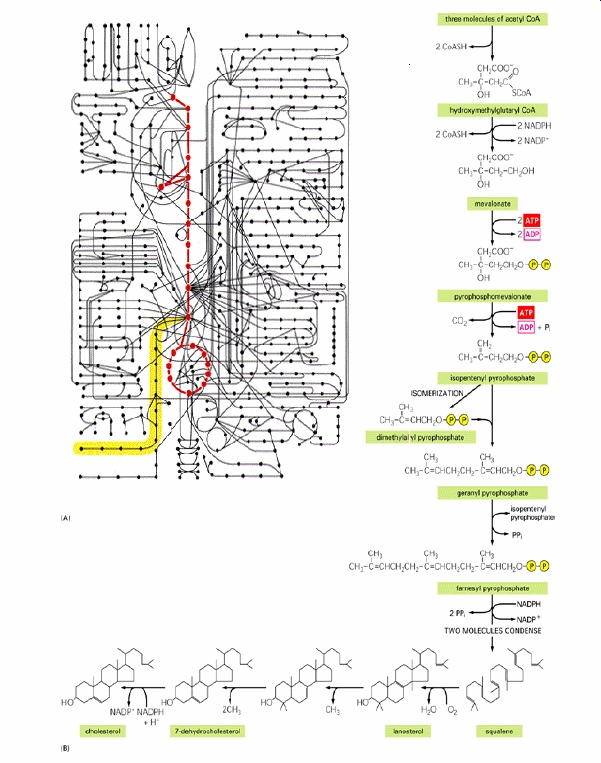 three molecules of acetyl CoA
2 CoASH
CH₂COO⁻
CH₃–C–CH₂C
O
SCoA
OH
hydroxymethylglutaryl CoA
2 CoASH
2 NADPH
2 NADP⁺
CH₂COO⁻
CH₃–C–CH₂–CH₂OH
OH
mevalonate
2 ATP
2 ADP
CH₂COO⁻
CH₃–C–CH₂CH₂O–P–P
OH
pyrophosphomevalonate
CO₂
ATP
ADP + Pᵢ
CH₂
CH₃–C–CH₂CH₂O–P–P
isopentenyl pyrophosphate
ISOMERIZATION
CH₃
CH₃–C=CHCH₂O–P–P
dimethylallyl pyrophosphate
CH₃ CH₃
CH₃–C=CHCH₂CH₂–C=CHCH₂O–P–P
geranyl pyrophosphate
(A)
isopentenyl
pyrophosphate
PPᵢ
CH₃ CH₃ CH₃
CH₃–C=CHCH₂CH₂–C=CHCH₂CH₂–C=CHCH₂O–P–P
farnesyl pyrophosphate
2 PPᵢ
NADPH
NADP⁺
TWO MOLECULES CONDENSE
HO HO HO HO
NADP⁺ NADPH
+ H⁺
2CH₃ CH₃ H₂O O₂
cholesterol 7-dehydrocholesterol lanosterol squalene
(B)